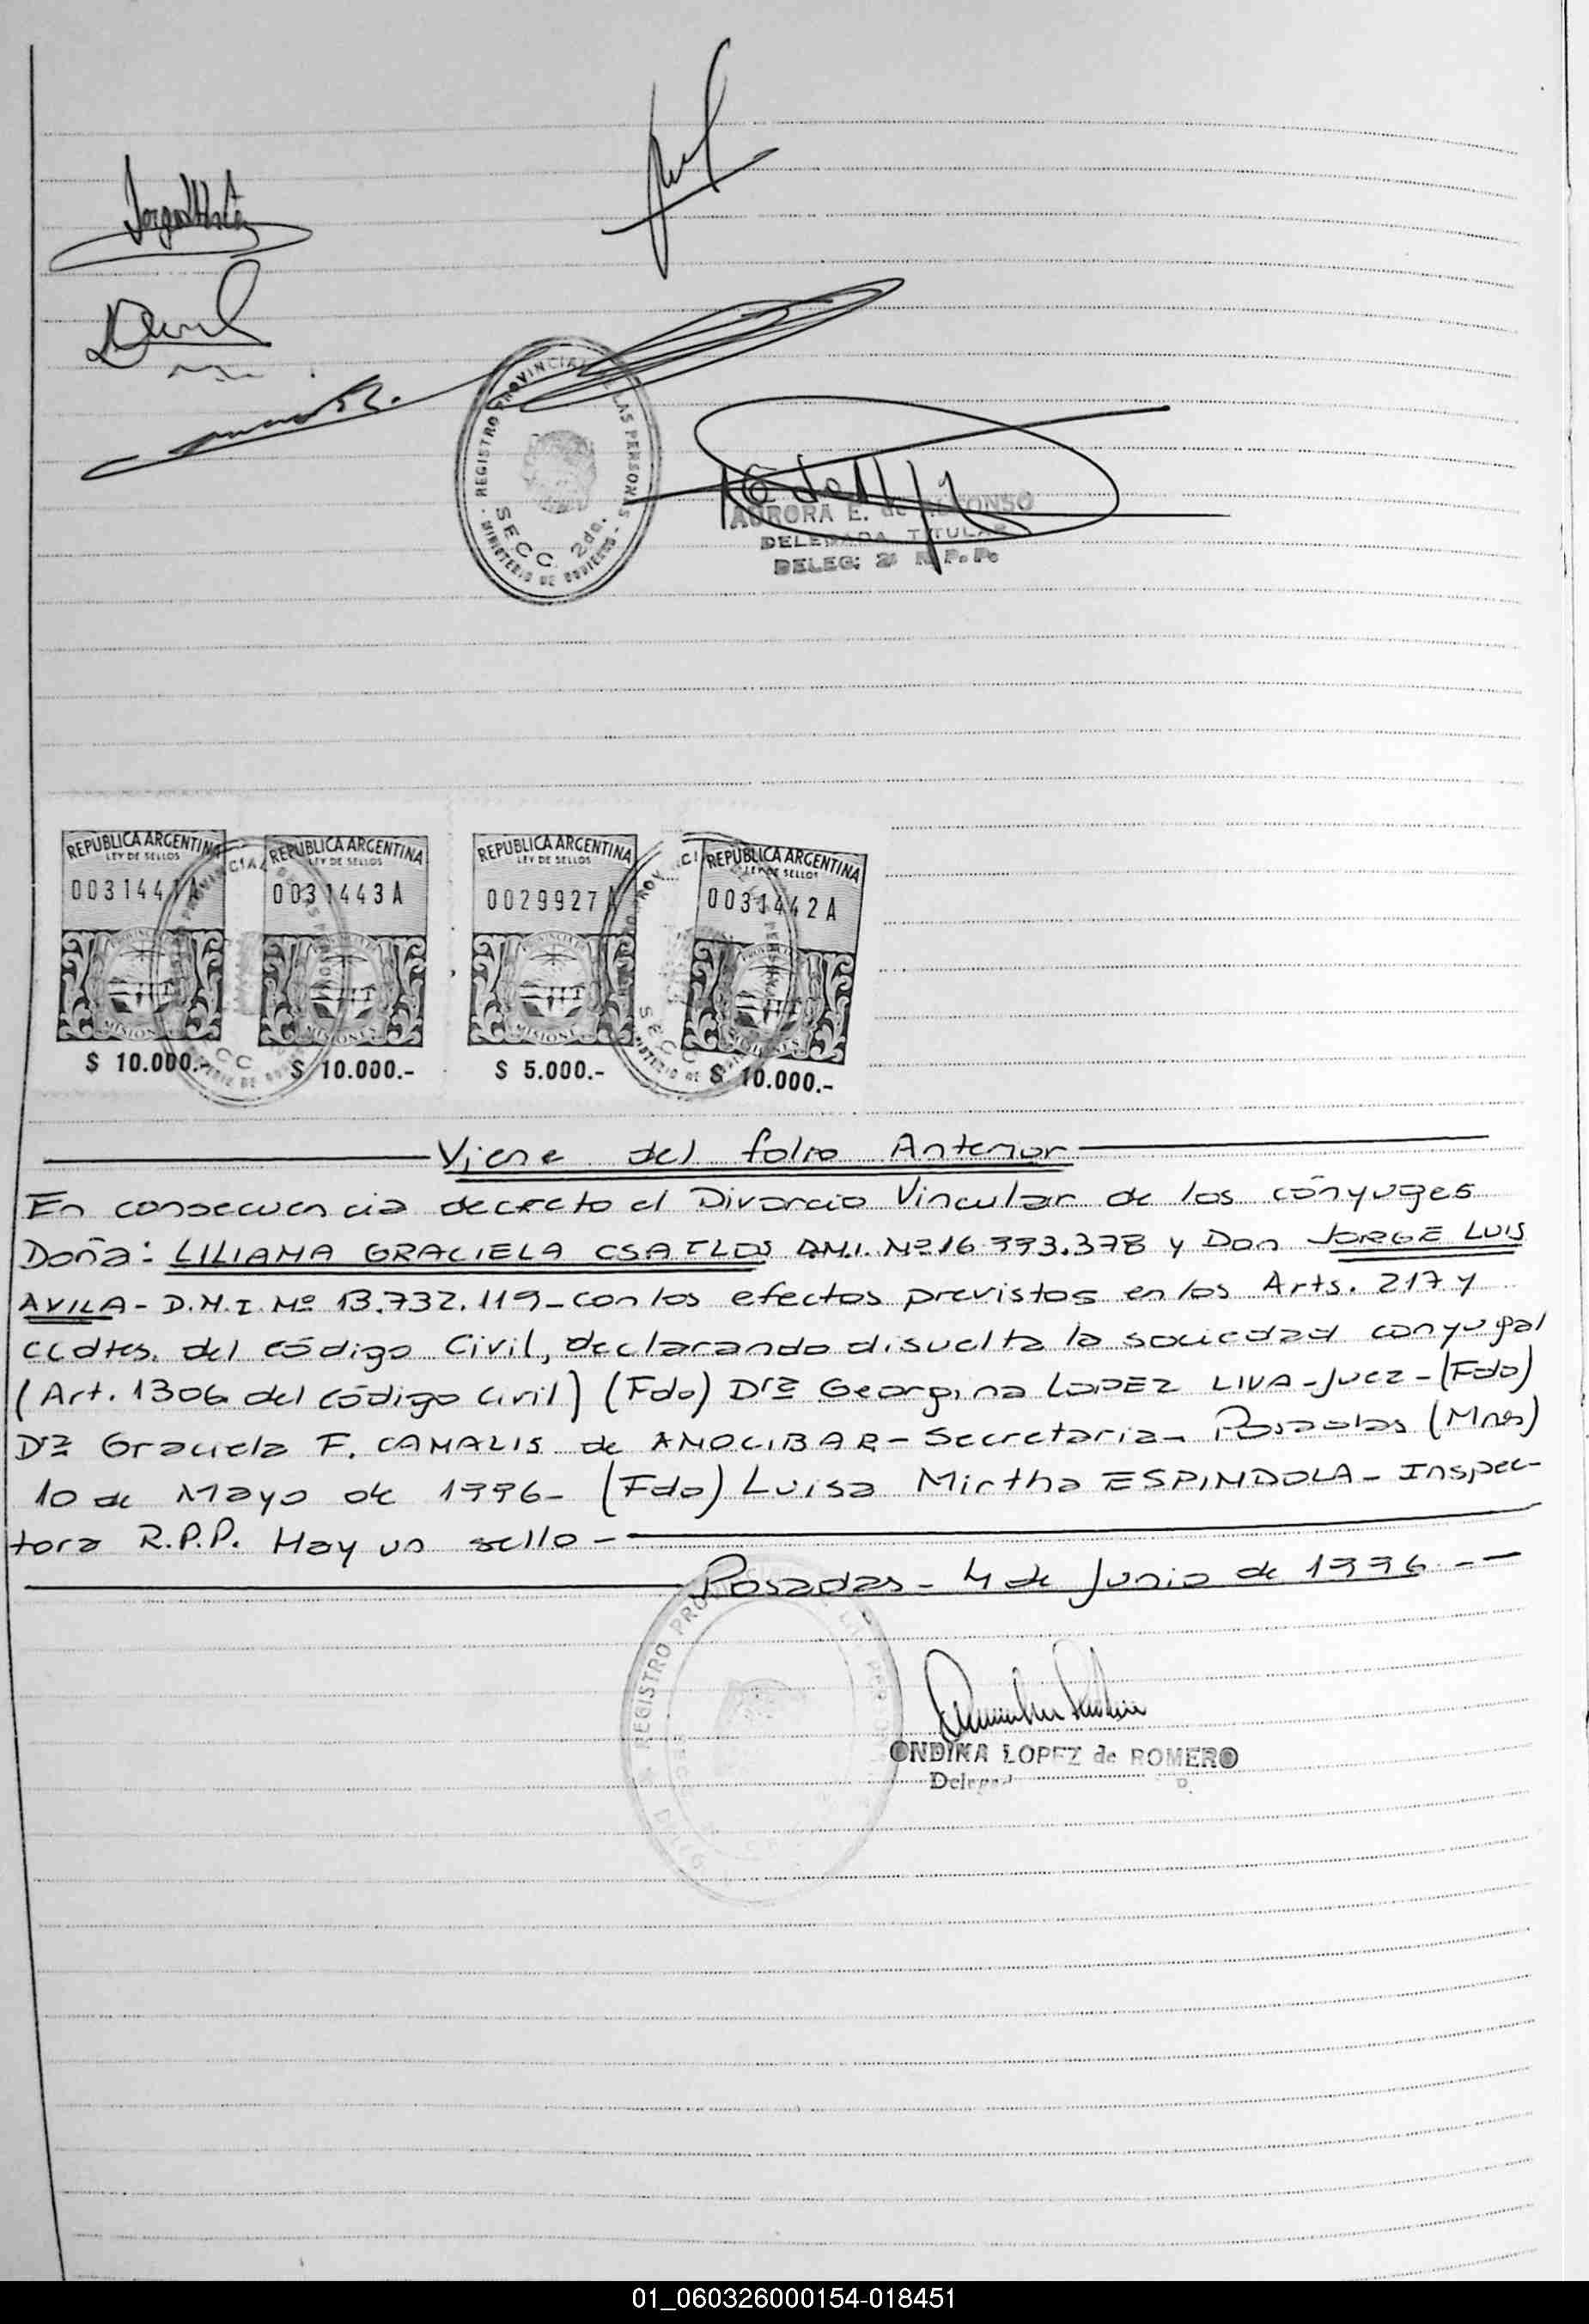 REGISTRO PROVINCIAL DE LAS PERSONAS
SECC. 2da.
MINISTERIO DE GOBIERNO
AURORA E. de ALFONSO
DELEGADA TITULAR
DELEG: 2ª R.P.P.
REPUBLICA ARGENTINA REPUBLICA ARGENTINA REPUBLICA ARGENTINA REPUBLICA ARGENTINA
LEY DE SELLOS LEY DE SELLOS LEY DE SELLOS LEY DE SELLOS
0031443A 0029927A 0031442A
MISIONES MISIONES MISIONES MISIONES
$ 10.000.- $ 10.000.- $ 5.000.- $ 10.000.-
Viene del folio Anterior
En consecuencia decreto el Divorcio Vincular de los cónyuges
Doña: LILIANA GRACIELA CSATLOS D.N.I. Nº 16.993.378 y Don JORGE LUIS
AVILA - D.N.I. Nº 13.732.119 - con los efectos previstos en los Arts. 217 y
ccdtes. del código Civil, declarando disuelta la sociedad conyugal
(Art. 1306 del código Civil) (Fdo) Drª Georgina LOPEZ LIVA - Juez - (Fdo)
Drª Graciela F. CANALIS de AMOCIBAR - Secretaria - Posadas (Mnes)
10 de Mayo de 1996 - (Fdo) Luisa Mirtha ESPINDOLA - Inspec-
tora R.P.P. Hay un sello -
Posadas - 4 de Junio de 1996 --
REGISTRO
ONDINA LOPEZ de ROMERO
01_060326000154-018451